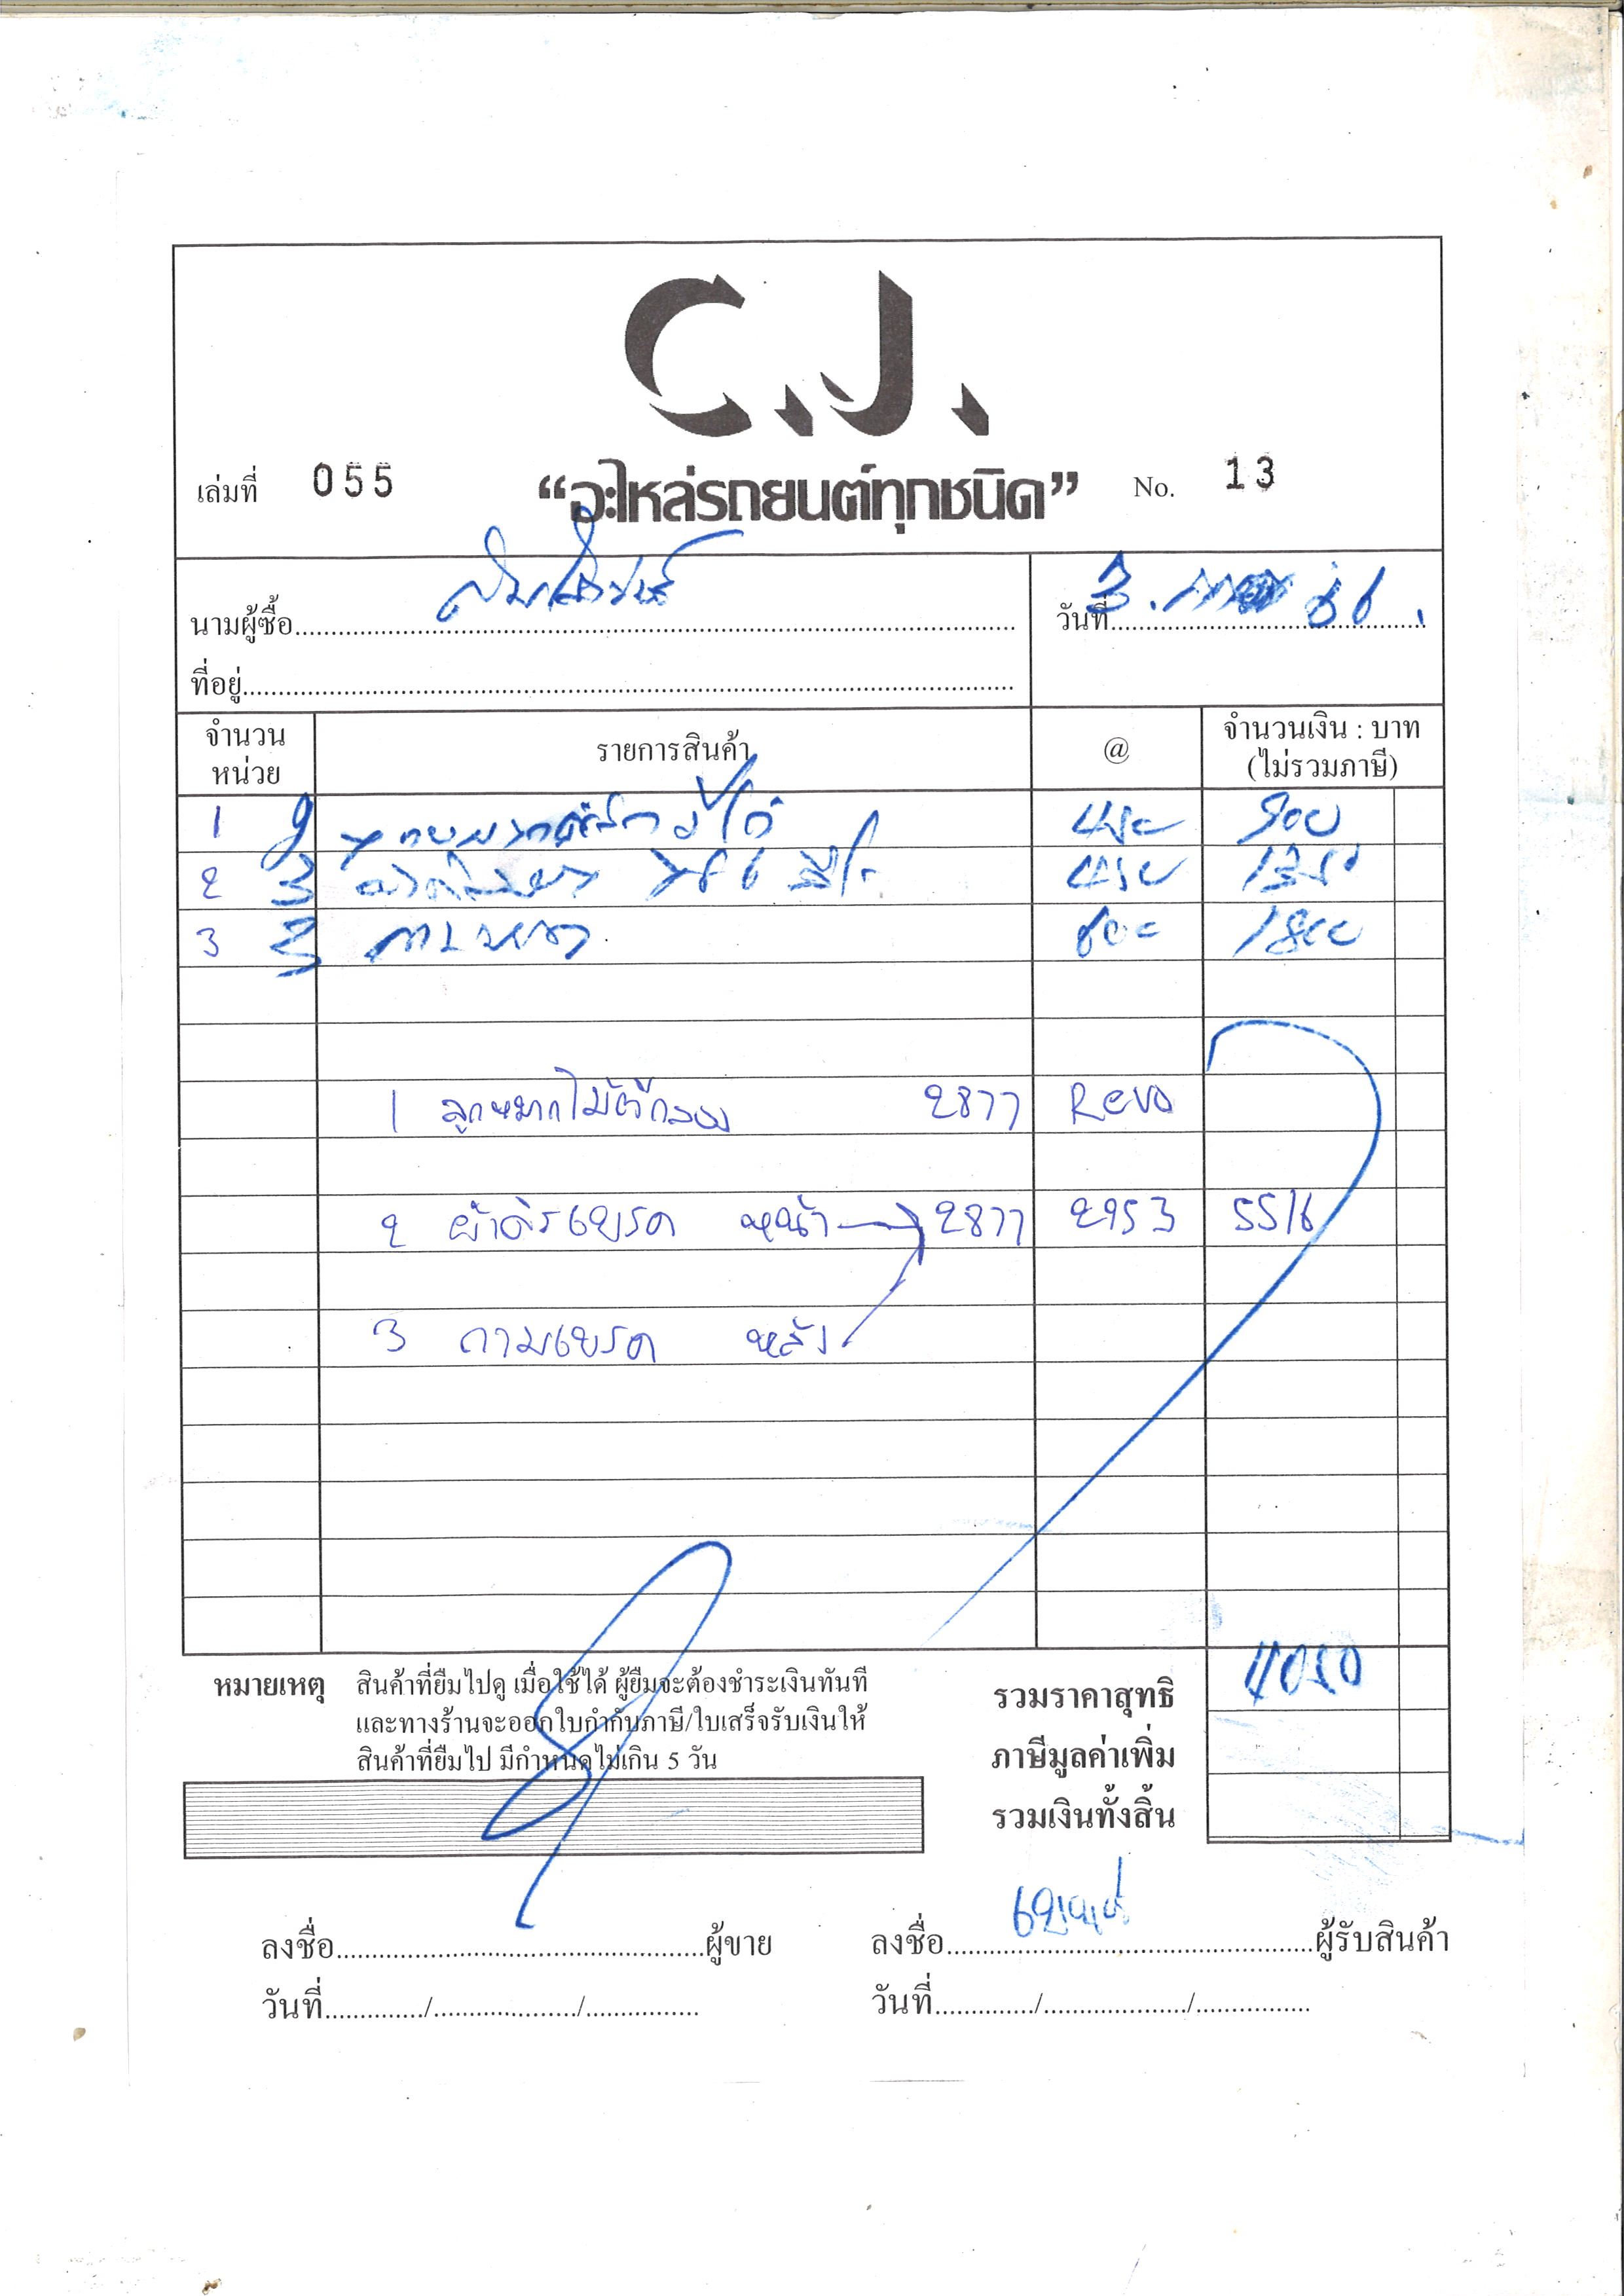 C.J.
เล่มที่ 055 “อะไหล่รถยนต์ทุกชนิด” No. 13
นามผู้ซื้อ วันที่ 3
ที่อยู่
จำนวน หน่วย รายการสินค้า @ จำนวนเงิน : บาท (ไม่รวมภาษี)
1 2 450 900
2 3 450 1350
3 3 600 1800
1 ลูกหมากไม้ตีกลอง 2877 Revo
2 ผ้าดิรเบรค หน้า 2877 2953 5516
3 กามเบรค หลัง
หมายเหตุ สินค้าที่ยืมไปดู เมื่อใช้ได้ ผู้ยืมจะต้องชำระเงินทันที
และทางร้านจะออกใบกำกับภาษี/ใบเสร็จรับเงินให้
สินค้าที่ยืมไป มีกำหนดไม่เกิน 5 วัน
รวมราคาสุทธิ 4050
ภาษีมูลค่าเพิ่ม
รวมเงินทั้งสิ้น
ลงชื่อ ผู้ขาย ลงชื่อ ผู้รับสินค้า
วันที่ / / วันที่ / /